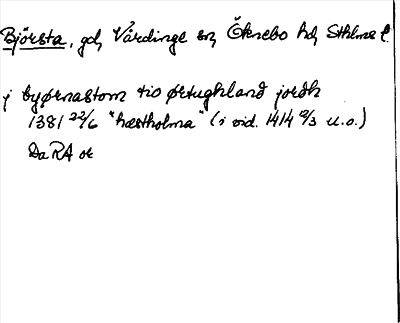 Björsta, gd, Vårdinge sn, Öknebo hd, Sthlms l.
j byørnastom tio ørtughland jordh
1381 22/6 "hæstholma" (i vid. 1414 9/3 u.o.)
DaRA or